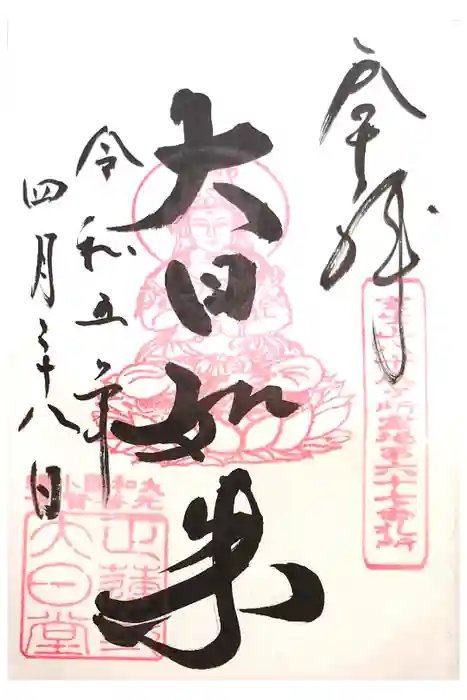 奉拝
第六十七番札所
大日如来
令和五年
四月二十八日
正蓮寺
大日堂